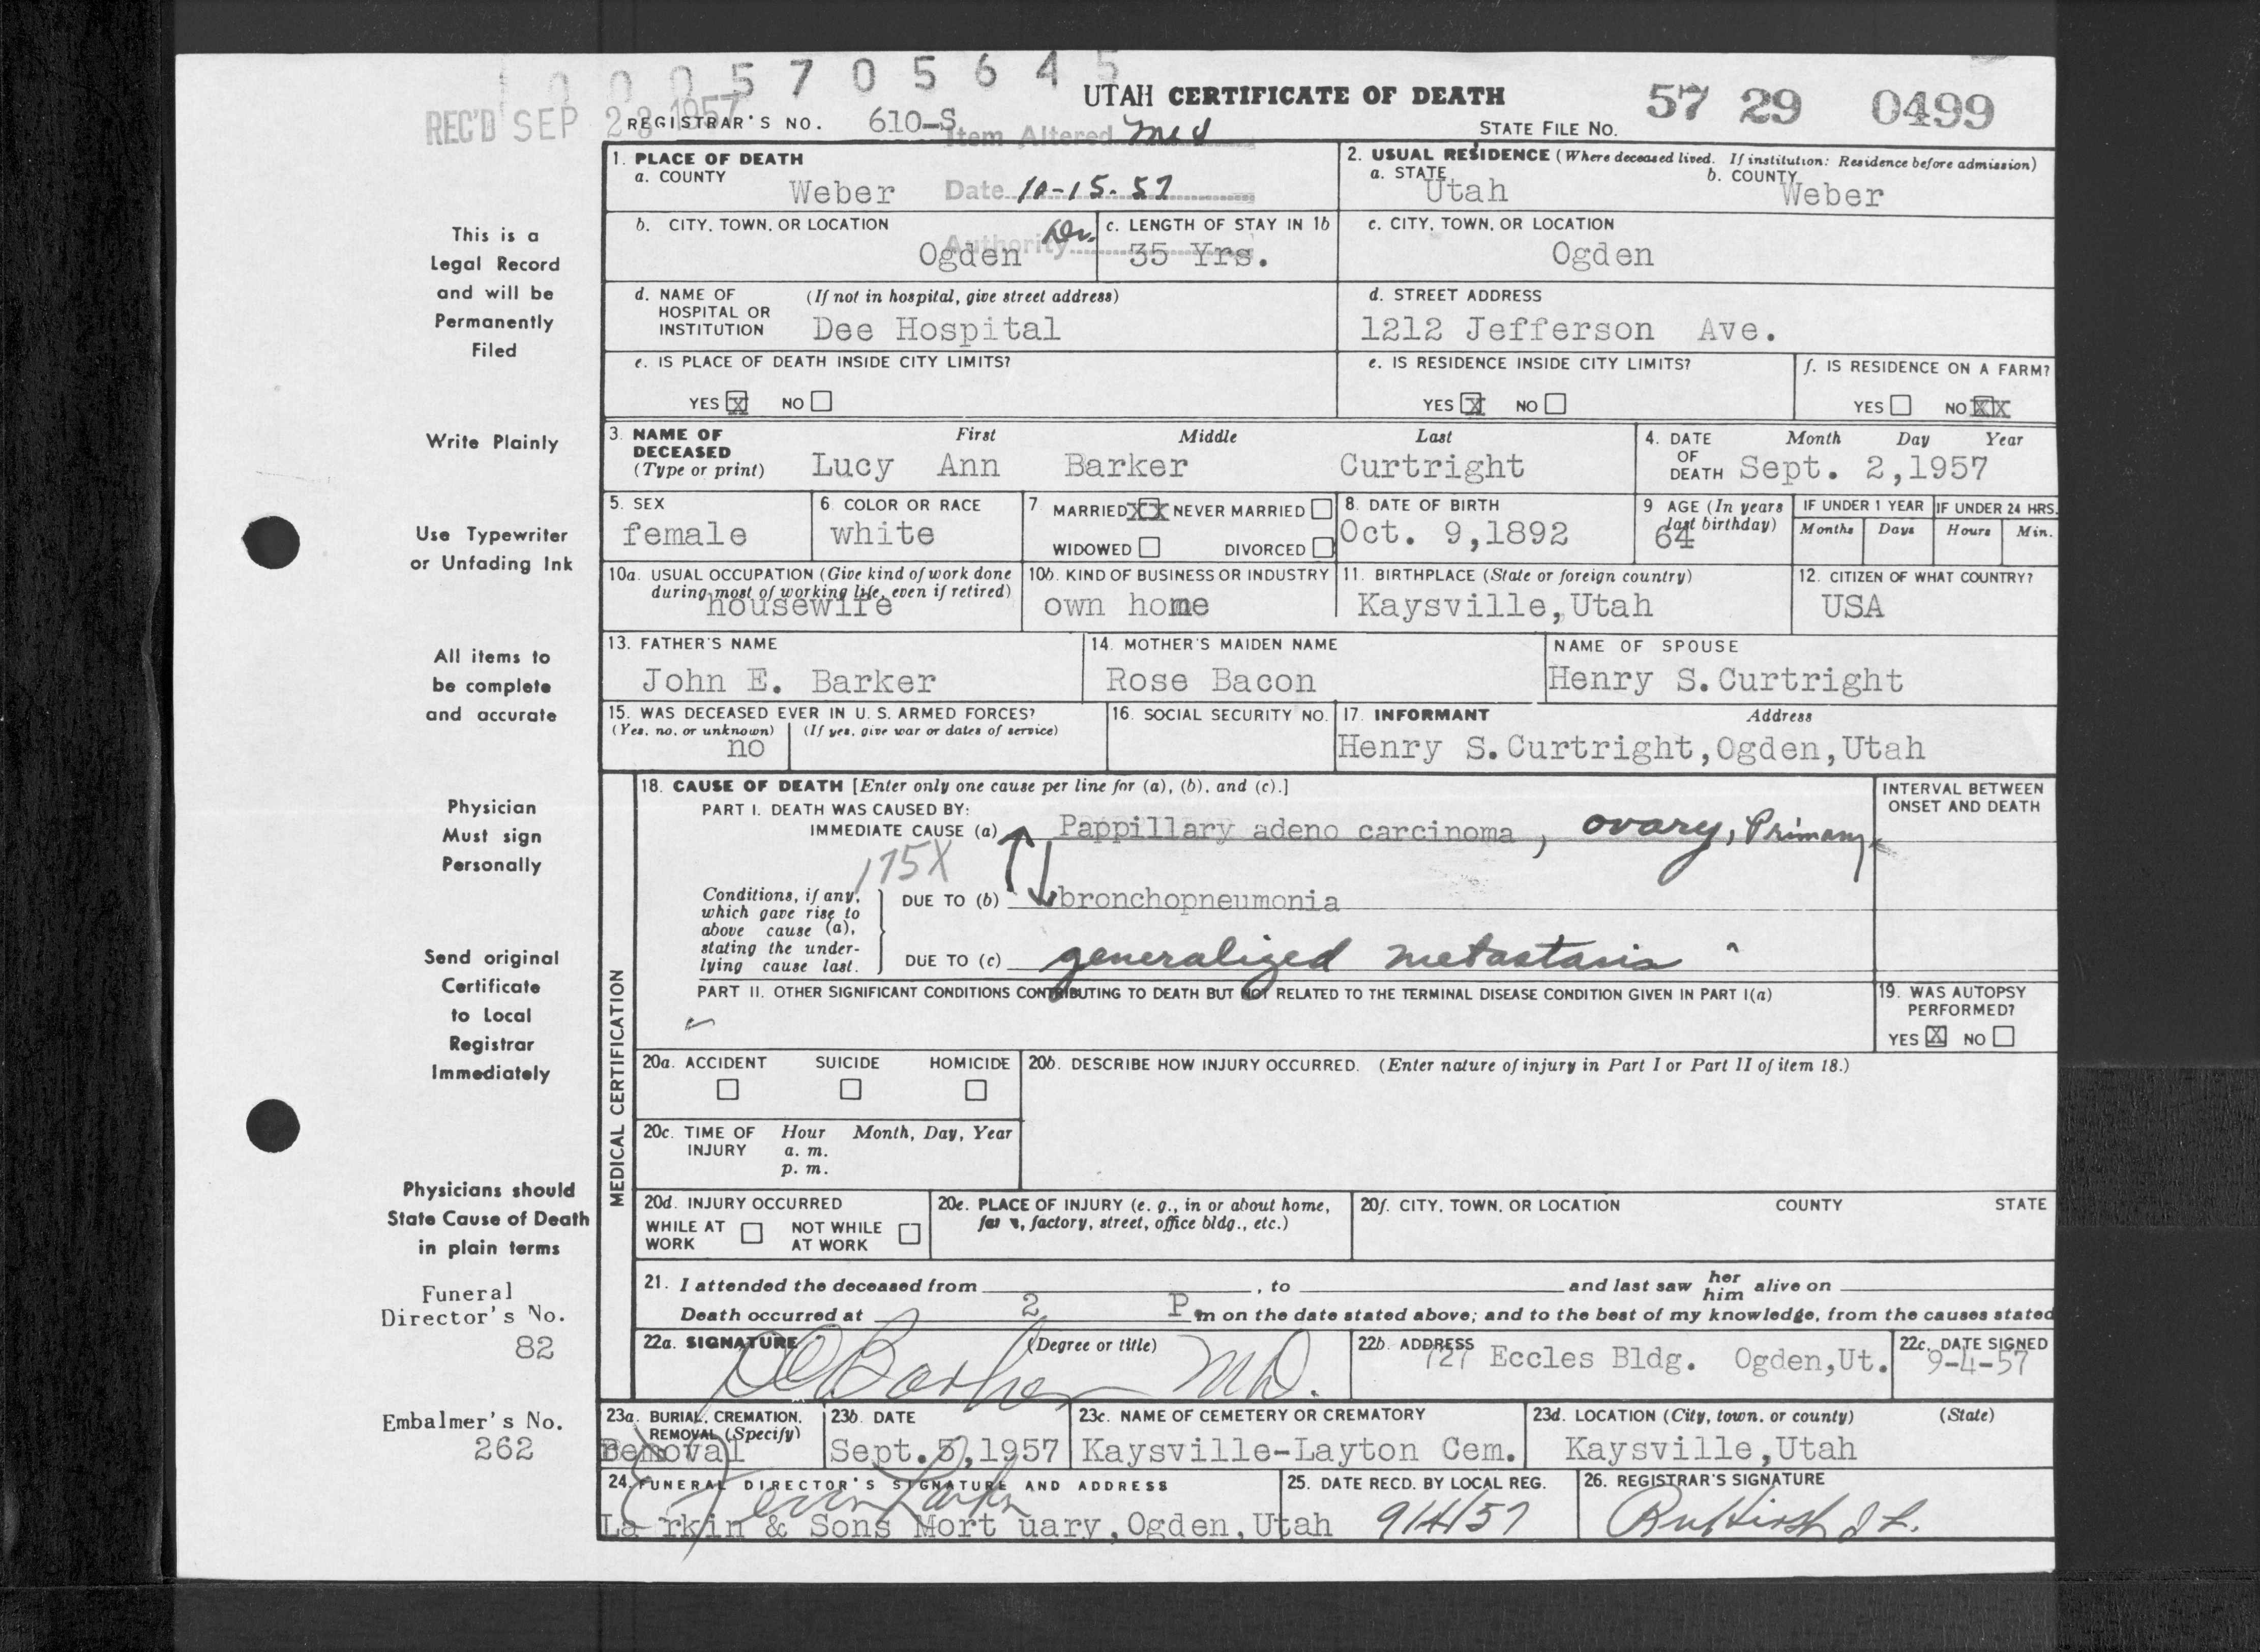 1 0 0 0 5 7 0 5 6 4 5
REC'D SEP 28 1957
UTAH CERTIFICATE OF DEATH
57 29 0499
REGISTRAR'S NO. 610-S
STATE FILE NO.
Item Altered Med
Date 10-15-57
Authority Dr.
1. PLACE OF DEATH
a. COUNTY Weber
2. USUAL RESIDENCE (Where deceased lived. If institution: Residence before admission)
a. STATE Utah b. COUNTY Weber
b. CITY, TOWN, OR LOCATION Ogden
c. LENGTH OF STAY IN 1b 35 Yrs.
c. CITY, TOWN, OR LOCATION Ogden
d. NAME OF HOSPITAL OR INSTITUTION (If not in hospital, give street address)
Dee Hospital
d. STREET ADDRESS
1212 Jefferson Ave.
e. IS PLACE OF DEATH INSIDE CITY LIMITS?
YES X NO
e. IS RESIDENCE INSIDE CITY LIMITS?
YES X NO
f. IS RESIDENCE ON A FARM?
YES NO XX
3. NAME OF DECEASED (Type or print) First Middle Last
Lucy Ann Barker Curtright
4. DATE OF DEATH Month Day Year
Sept. 2,1957
5. SEX
female
6. COLOR OR RACE
white
7. MARRIED XX NEVER MARRIED
WIDOWED DIVORCED
8. DATE OF BIRTH
Oct. 9,1892
9 AGE (In years last birthday)
64
IF UNDER 1 YEAR
Months Days
IF UNDER 24 HRS.
Hours Min.
10a. USUAL OCCUPATION (Give kind of work done during most of working life, even if retired)
housewife
10b. KIND OF BUSINESS OR INDUSTRY
own home
11. BIRTHPLACE (State or foreign country)
Kaysville,Utah
12. CITIZEN OF WHAT COUNTRY?
USA
13. FATHER'S NAME
John E. Barker
14. MOTHER'S MAIDEN NAME
Rose Bacon
NAME OF SPOUSE
Henry S.Curtright
15. WAS DECEASED EVER IN U. S. ARMED FORCES?
(Yes, no, or unknown) (If yes, give war or dates of service)
no
16. SOCIAL SECURITY NO.
17. INFORMANT Address
Henry S.Curtright,Ogden,Utah
MEDICAL CERTIFICATION
18. CAUSE OF DEATH [Enter only one cause per line for (a), (b), and (c).]
INTERVAL BETWEEN ONSET AND DEATH
PART I. DEATH WAS CAUSED BY:
IMMEDIATE CAUSE (a) Pappillary adeno carcinoma, ovary, Primary
175X
Conditions, if any, which gave rise to above cause (a), stating the underlying cause last.
DUE TO (b) bronchopneumonia
DUE TO (c) generalized metastasis
PART II. OTHER SIGNIFICANT CONDITIONS CONTRIBUTING TO DEATH BUT NOT RELATED TO THE TERMINAL DISEASE CONDITION GIVEN IN PART I(a)
19. WAS AUTOPSY PERFORMED?
YES X NO
20a. ACCIDENT SUICIDE HOMICIDE
20b. DESCRIBE HOW INJURY OCCURRED. (Enter nature of injury in Part I or Part II of item 18.)
20c. TIME OF INJURY Hour Month, Day, Year
a. m.
p. m.
20d. INJURY OCCURRED
WHILE AT WORK NOT WHILE AT WORK
20e. PLACE OF INJURY (e. g., in or about home, farm, factory, street, office bldg., etc.)
20f. CITY, TOWN, OR LOCATION COUNTY STATE
21. I attended the deceased from , to and last saw her him alive on
Death occurred at 2 P.m on the date stated above; and to the best of my knowledge, from the causes stated
22a. SIGNATURE (Degree or title)
Barker MD.
22b. ADDRESS
727 Eccles Bldg. Ogden,Ut.
22c. DATE SIGNED
9-4-57
23a. BURIAL, CREMATION, REMOVAL (Specify)
Removal
23b. DATE
Sept.5,1957
23c. NAME OF CEMETERY OR CREMATORY
Kaysville-Layton Cem.
23d. LOCATION (City, town, or county) (State)
Kaysville,Utah
24. FUNERAL DIRECTOR'S SIGNATURE AND ADDRESS
La rkin & Sons Mort uary,Ogden,Utah
25. DATE RECD. BY LOCAL REG.
9/4/57
26. REGISTRAR'S SIGNATURE
This is a
Legal Record
and will be
Permanently
Filed
Write Plainly
Use Typewriter
or Unfading Ink
All items to
be complete
and accurate
Physician
Must sign
Personally
Send original
Certificate
to Local
Registrar
Immediately
Physicians should
State Cause of Death
in plain terms
Funeral
Director's No.
82
Embalmer's No.
262